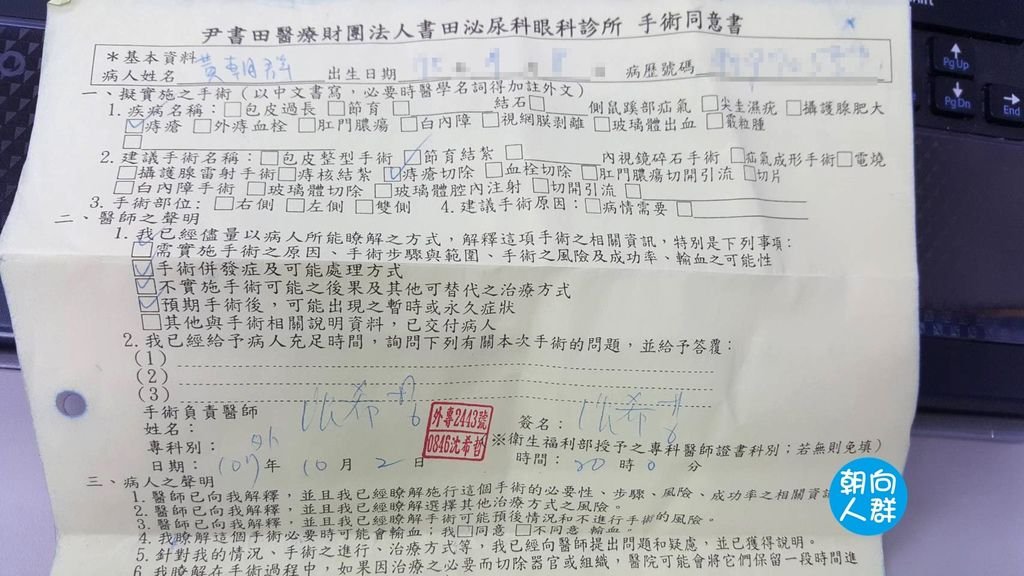 尹書田醫療財團法人書田泌尿科眼科診所 手術同意書
*基本資料
病人姓名 黃朝群 出生日期 病歷號碼
一、擬實施之手術(以中文書寫,必要時醫學名詞得加註外文)
1. 疾病名稱:□包皮過長 □節育 □ 結石□ 側鼠蹊部疝氣 □尖圭濕疣 □攝護腺肥大
☑痔瘡 □外痔血栓 □肛門膿瘍 □白內障 □視網膜剥離 □玻璃體出血 □霰粒腫
□
2. 建議手術名稱:□包皮整型手術 □節育結紮 □ 內視鏡碎石手術 □疝氣成形手術□電燒
□攝護腺雷射手術□痔核結紮 ☑痔瘡切除 □血栓切除 □肛門膿瘍切開引流 □切片
□白內障手術 □玻璃體切除 □玻璃體腔內注射 □切開引流 □
3. 手術部位:□右側 □左側 □雙側 4. 建議手術原因:□病情需要 □
二、醫師之聲明
1. 我已經儘量以病人所能瞭解之方式,解釋這項手術之相關資訊,特別是下列事項:
☑需實施手術之原因、手術步驟與範圍、手術之風險及成功率、輸血之可能性
☑手術併發症及可能處理方式
☑不實施手術可能之後果及其他可替代之治療方式
☑預期手術後,可能出現之暫時或永久症狀
□其他與手術相關說明資料,已交付病人
2. 我已經給予病人充足時間,詢問下列有關本次手術的問題,並給予答覆:
(1)
(2)
(3)
手術負責醫師
姓名: 沈希哲 外專2443號 0846沈希哲 簽名: 沈希哲
專科別: 外 ※衛生福利部授予之專科醫師證書科別;若無則免填)
日期: 107 年 10 月 2 日 時間: 20 時 0 分
三、病人之聲明
1. 醫師已向我解釋,並且我已經瞭解施行這個手術的必要性、步驟、風險、成功率之相關資
2. 醫師已向我解釋,並且我已經瞭解選擇其他治療方式之風險。
3. 醫師已向我解釋,並且我已經瞭解手術可能預後情況和不進行手術的風險。
4. 我瞭解這個手術必要時可能會輸血;我□同意 □不同意 輸血
5. 針對我的情況、手術之進行、治療方式等,我已經向醫師提出問題和疑慮,並已獲得說明。
6. 我瞭解在手術過程中,如果因治療之必要而切除器官或組織,醫院可能會將它們保留一段時間進
朝向
人群
Pg Up
Pg Dn
End